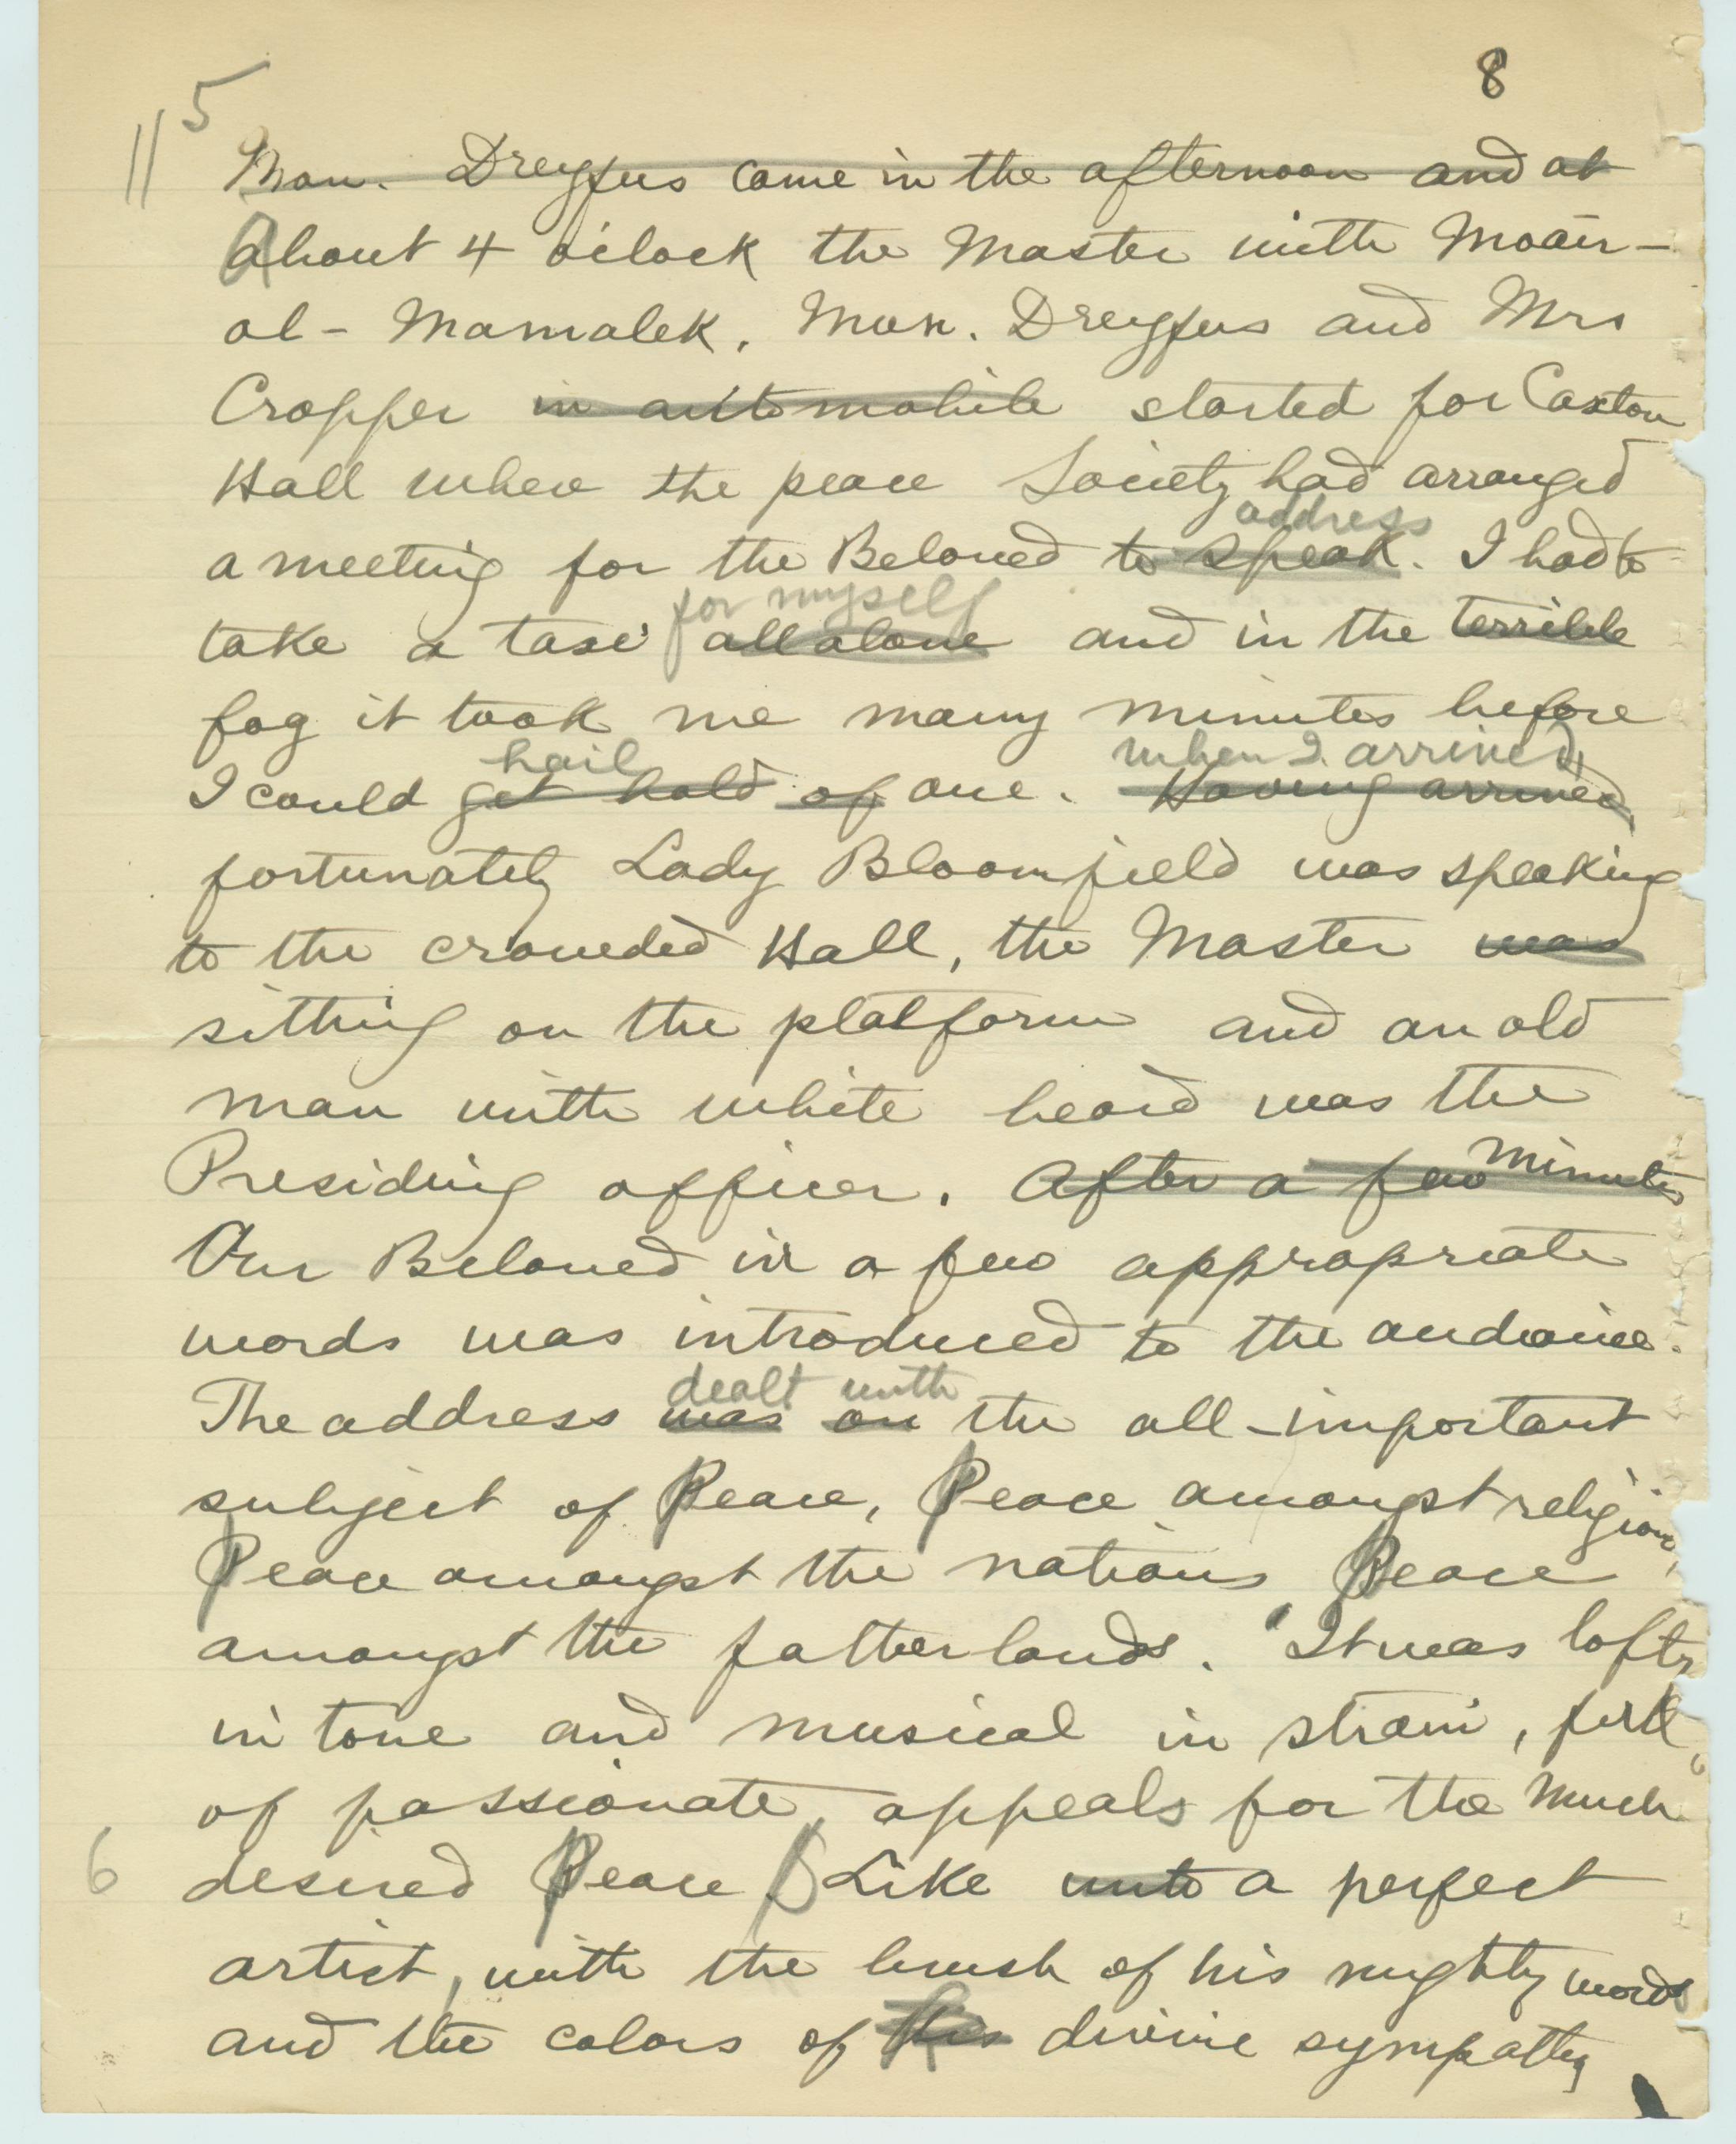 8
11 5
Mon. Dreyfus came in the afternoon and at
About 4 o'clock the Master with Moäin-
ol-Mamalek, Mon. Dreyfus and Mrs
Cropper in automobile started for Caxton
Hall where the peace Society had arranged
address
a meeting for the Beloved to speak. I had to
for myself
take a taxi all alone and in the terrible
fog it took me many minutes before
hail when I arrived,
I could get hold of one. Having arrived,
fortunately Lady Bloomfield was speaking
to the crowded Hall, the Master was
sitting on the platform and an old
man with white beard was the
Presiding officer. After a few minutes
Our Beloved in a few appropriate
words was introduced to the audience.
dealt with
The address was on the all-important
subject of Peace, Peace amongst religions,
Peace amongst the nations, Peace
amongst the fatherlands. It was lofty
in tone and musical in strain, full
of passionate appeals for the much
6 desired Peace. Like unto a perfect
artist, with the brush of his mighty words
and the colors of his divine sympathy